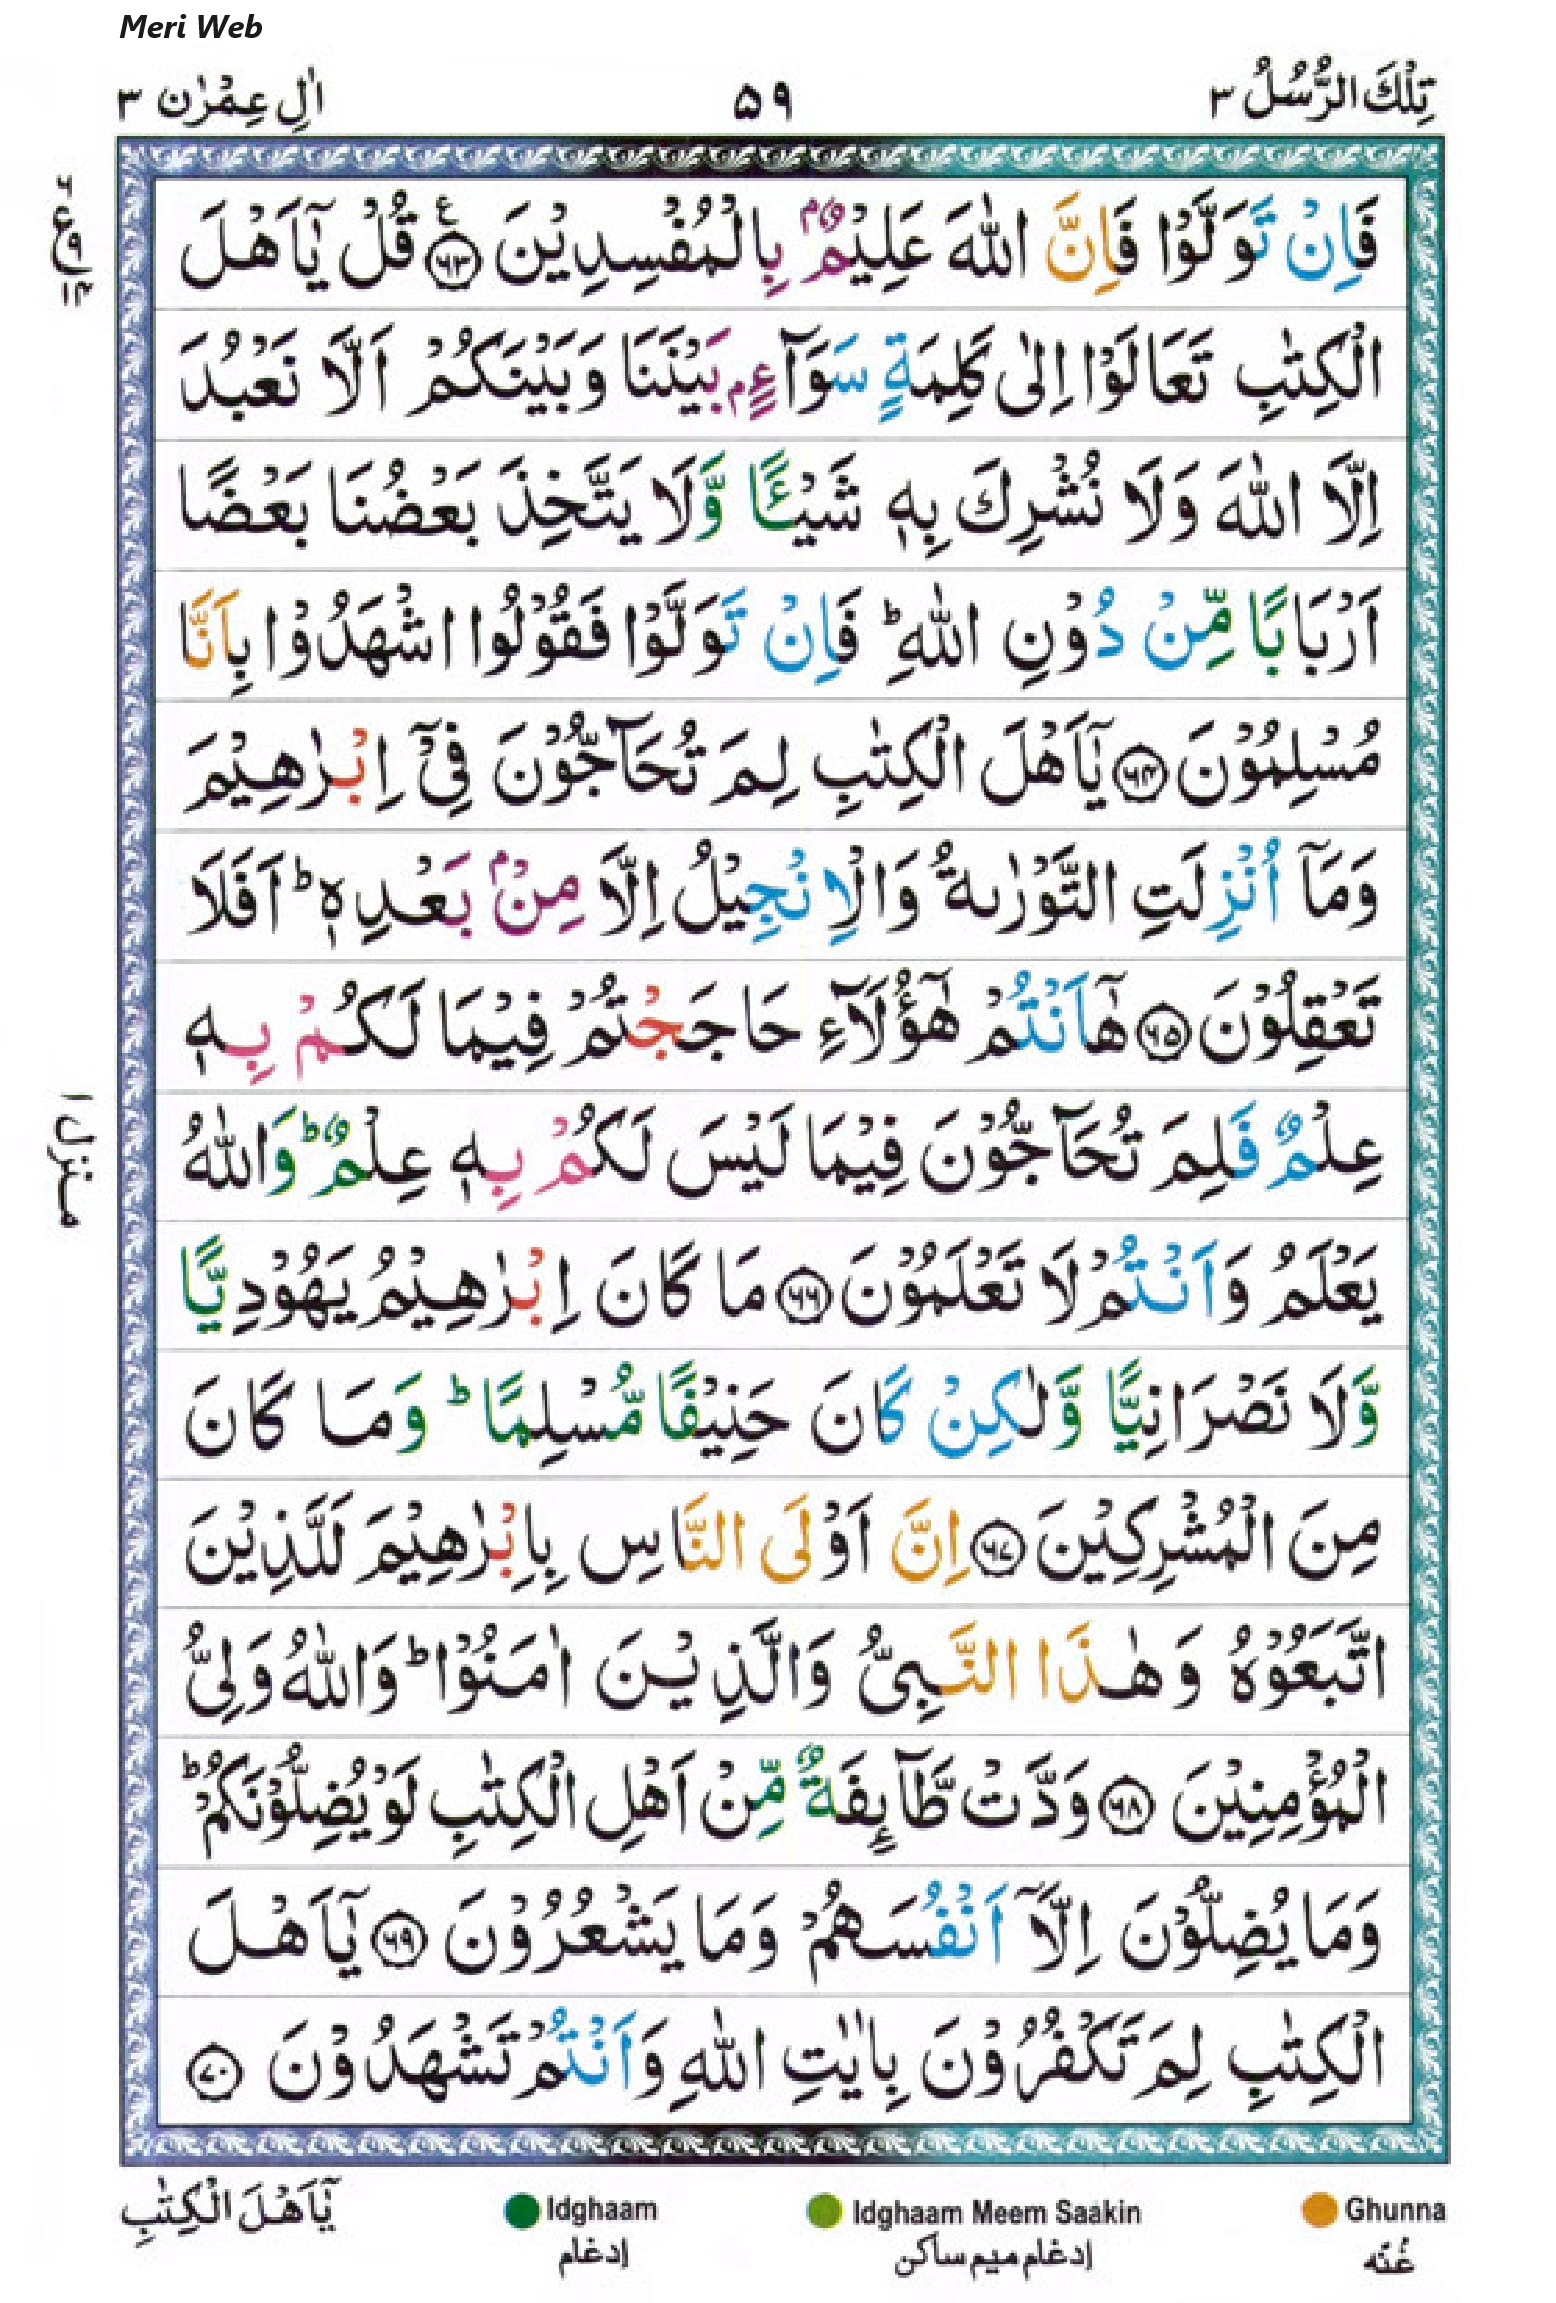 Meri Web
تِلْكَ الرُّسُلُ ٣
٥٩
اٰلِ عِمْرٰن ٣
فَاِنْ تَوَلَّوْا فَاِنَّ اللّٰهَ عَلِيْمٌۢ بِالْمُفْسِدِيْنَ ﴿٦٣﴾ قُلْ يٰۤاَهْلَ
الْكِتٰبِ تَعَالَوْا اِلٰى كَلِمَةٍ سَوَآءٍۭ بَيْنَنَا وَبَيْنَكُمْ اَلَّا نَعْبُدَ
اِلَّا اللّٰهَ وَلَا نُشْرِكَ بِهٖ شَيْـًٔا وَّلَا يَتَّخِذَ بَعْضُنَا بَعْضًا
اَرْبَابًا مِّنْ دُوْنِ اللّٰهِ ؕ فَاِنْ تَوَلَّوْا فَقُوْلُوا اشْهَدُوْا بِاَنَّا
مُسْلِمُوْنَ ﴿٦٤﴾ يٰۤاَهْلَ الْكِتٰبِ لِمَ تُحَآجُّوْنَ فِيْۤ اِبْرٰهِيْمَ
وَمَاۤ اُنْزِلَتِ التَّوْرٰىةُ وَالْاِنْجِيْلُ اِلَّا مِنْۢ بَعْدِهٖ ؕ اَفَلَا
تَعْقِلُوْنَ ﴿٦٥﴾ هٰۤاَنْتُمْ هٰۤؤُلَآءِ حَاجَجْتُمْ فِيْمَا لَكُمْ بِهٖ
عِلْمٌ فَلِمَ تُحَآجُّوْنَ فِيْمَا لَيْسَ لَكُمْ بِهٖ عِلْمٌ ؕ وَاللّٰهُ
يَعْلَمُ وَاَنْتُمْ لَا تَعْلَمُوْنَ ﴿٦٦﴾ مَا كَانَ اِبْرٰهِيْمُ يَهُوْدِيًّا
وَّلَا نَصْرَانِيًّا وَّلٰكِنْ كَانَ حَنِيْفًا مُّسْلِمًا ؕ وَمَا كَانَ
مِنَ الْمُشْرِكِيْنَ ﴿٦٧﴾ اِنَّ اَوْلَى النَّاسِ بِاِبْرٰهِيْمَ لَلَّذِيْنَ
اتَّبَعُوْهُ وَهٰذَا النَّبِىُّ وَالَّذِيْنَ اٰمَنُوْا ؕ وَاللّٰهُ وَلِىُّ
الْمُؤْمِنِيْنَ ﴿٦٨﴾ وَدَّتْ طَّآىِٕفَةٌ مِّنْ اَهْلِ الْكِتٰبِ لَوْ يُضِلُّوْنَكُمْ ؕ
وَمَا يُضِلُّوْنَ اِلَّاۤ اَنْفُسَهُمْ وَمَا يَشْعُرُوْنَ ﴿٦٩﴾ يٰۤاَهْلَ
الْكِتٰبِ لِمَ تَكْفُرُوْنَ بِاٰيٰتِ اللّٰهِ وَاَنْتُمْ تَشْهَدُوْنَ ﴿٧٠﴾
منزل ١
يٰۤاَهْلَ الْكِتٰبِ
Idghaam
إدغام
Idghaam Meem Saakin
إدغام ميم ساكن
Ghunna
غُنّه